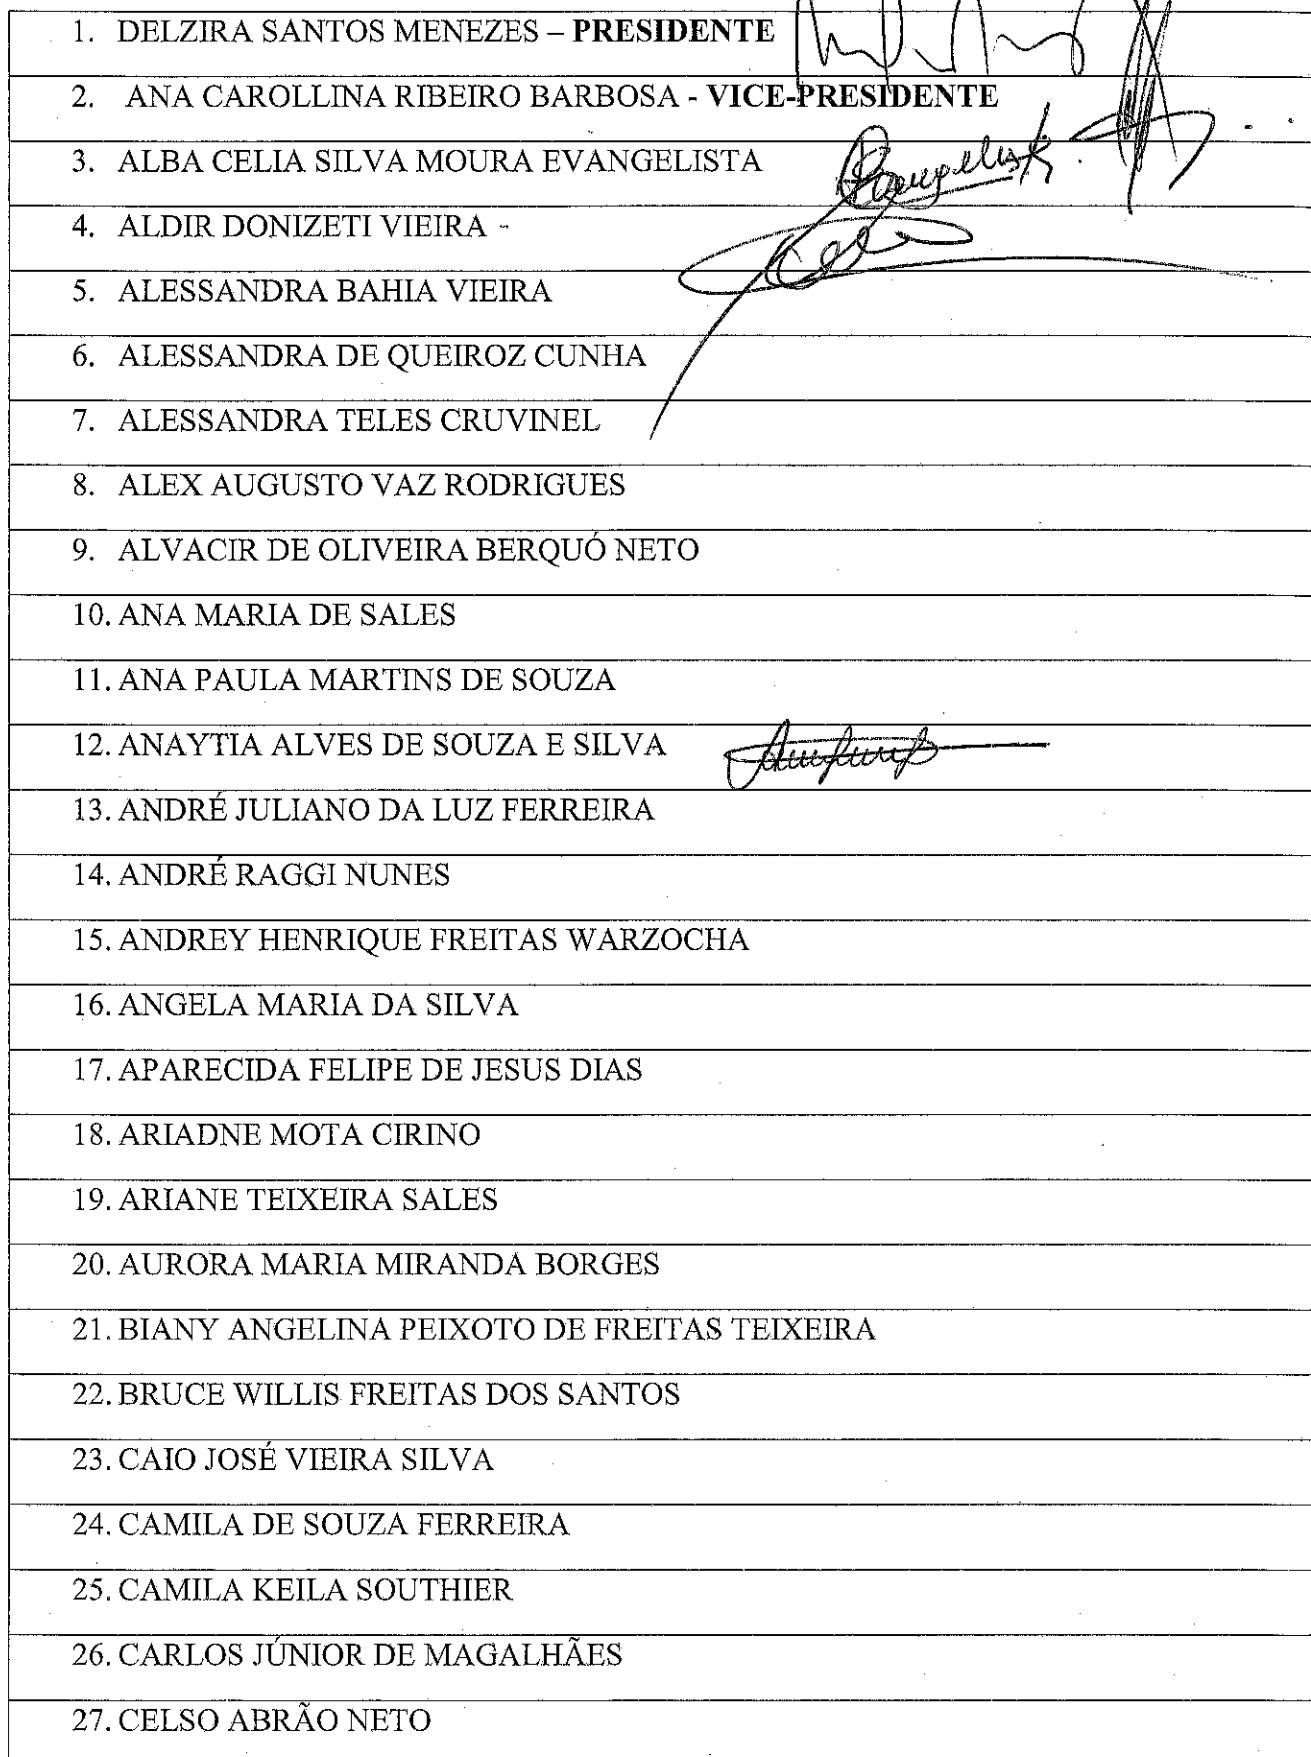 1. DELZIRA SANTOS MENEZES – PRESIDENTE
2. ANA CAROLLINA RIBEIRO BARBOSA - VICE-PRESIDENTE
3. ALBA CELIA SILVA MOURA EVANGELISTA
4. ALDIR DONIZETI VIEIRA -
5. ALESSANDRA BAHIA VIEIRA
6. ALESSANDRA DE QUEIROZ CUNHA
7. ALESSANDRA TELES CRUVINEL
8. ALEX AUGUSTO VAZ RODRIGUES
9. ALVACIR DE OLIVEIRA BERQUÓ NETO
10. ANA MARIA DE SALES
11. ANA PAULA MARTINS DE SOUZA
12. ANAYTIA ALVES DE SOUZA E SILVA
13. ANDRÉ JULIANO DA LUZ FERREIRA
14. ANDRÉ RAGGI NUNES
15. ANDREY HENRIQUE FREITAS WARZOCHA
16. ANGELA MARIA DA SILVA
17. APARECIDA FELIPE DE JESUS DIAS
18. ARIADNE MOTA CIRINO
19. ARIANE TEIXEIRA SALES
20. AURORA MARIA MIRANDA BORGES
21. BIANY ANGELINA PEIXOTO DE FREITAS TEIXEIRA
22. BRUCE WILLIS FREITAS DOS SANTOS
23. CAIO JOSÉ VIEIRA SILVA
24. CAMILA DE SOUZA FERREIRA
25. CAMILA KEILA SOUTHIER
26. CARLOS JÚNIOR DE MAGALHÃES
27. CELSO ABRÃO NETO